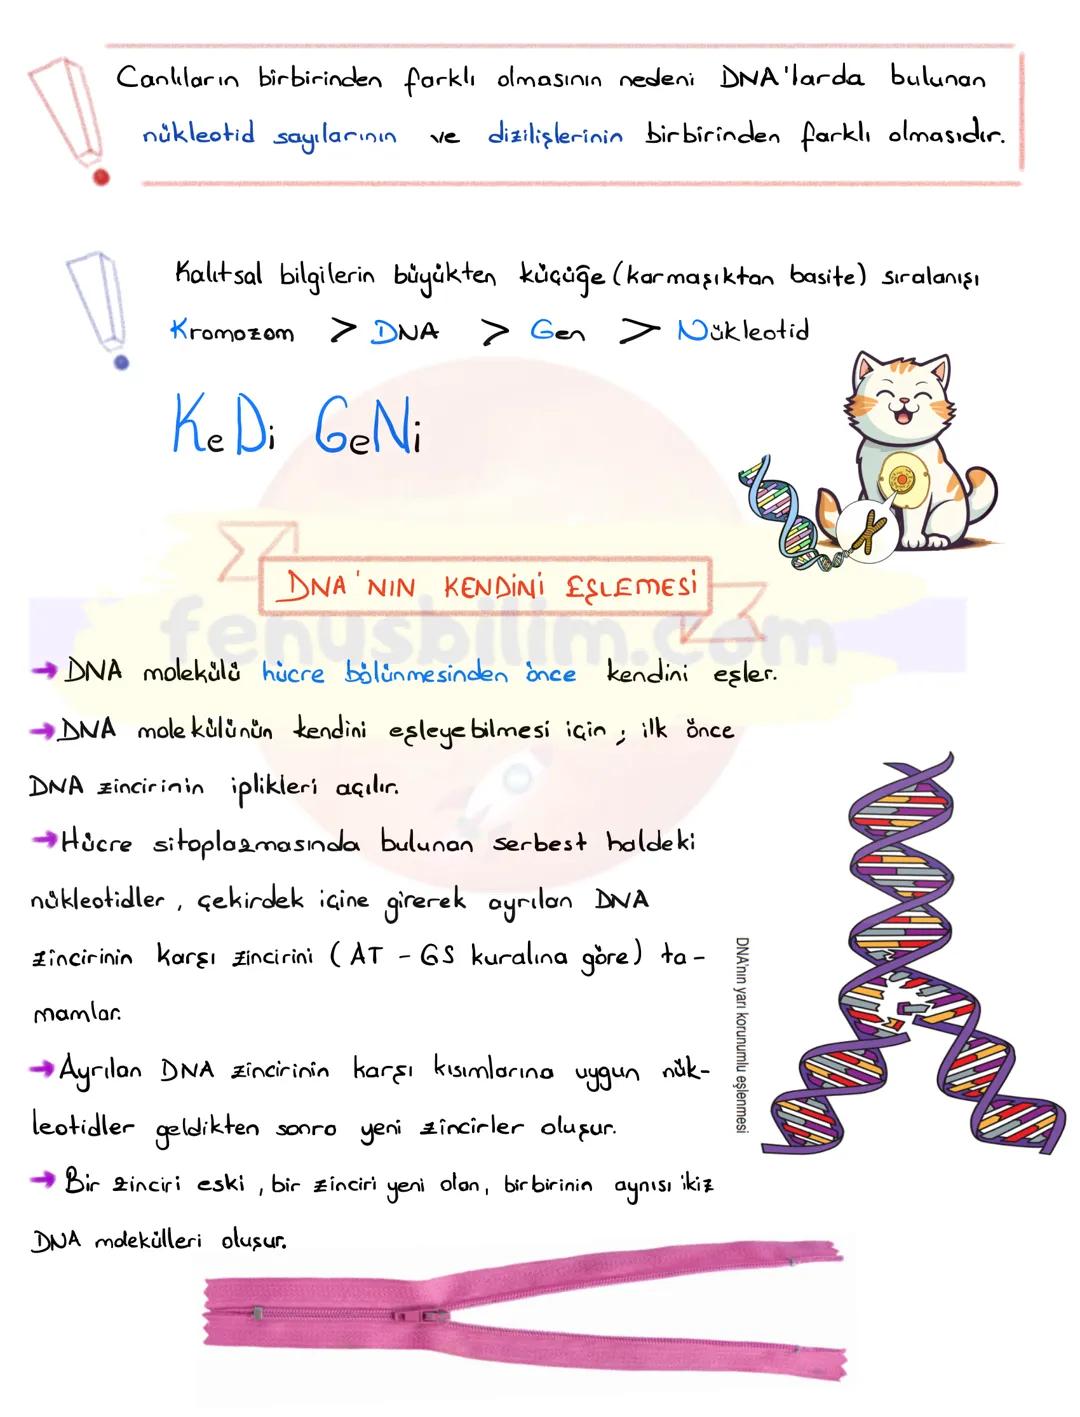 Canlıların birbirinden farklı olmasının nedeni DNA'larda bulunan
nükleotid sayılarının ve dizilişlerinin birbirinden farklı olmasıdır.
Kalıtsal bilgilerin büyükten küçüğe (karmaşıktan basite) sıralanışı
Kromozom > DNA > Gen > Nükleotid
KeDi GeNi
DNA'NIN KENDİNİ EŞLEMESİ
fenusbilim.com
→ DNA molekülü hücre bölünmesinden önce kendini eşler.
→ DNA molekülünün kendini eşleyebilmesi için ; ilk önce
DNA zincirinin iplikleri açılır.
→ Hücre sitoplazmasında bulunan serbest haldeki
nükleotidler , çekirdek içine girerek ayrılan DNA
zincirinin karşı zincirini ( AT - GS kuralına göre) ta-
mamlar.
→ Ayrılan DNA zincirinin karşı kısımlarına uygun nük-
leotidler geldikten sonra yeni zincirler oluşur.
→ Bir zinciri eski , bir zinciri yeni olan, birbirinin aynısı ikiz
DNA molekülleri oluşur.
DNA'nın yarı korunumlu eşlenmesi